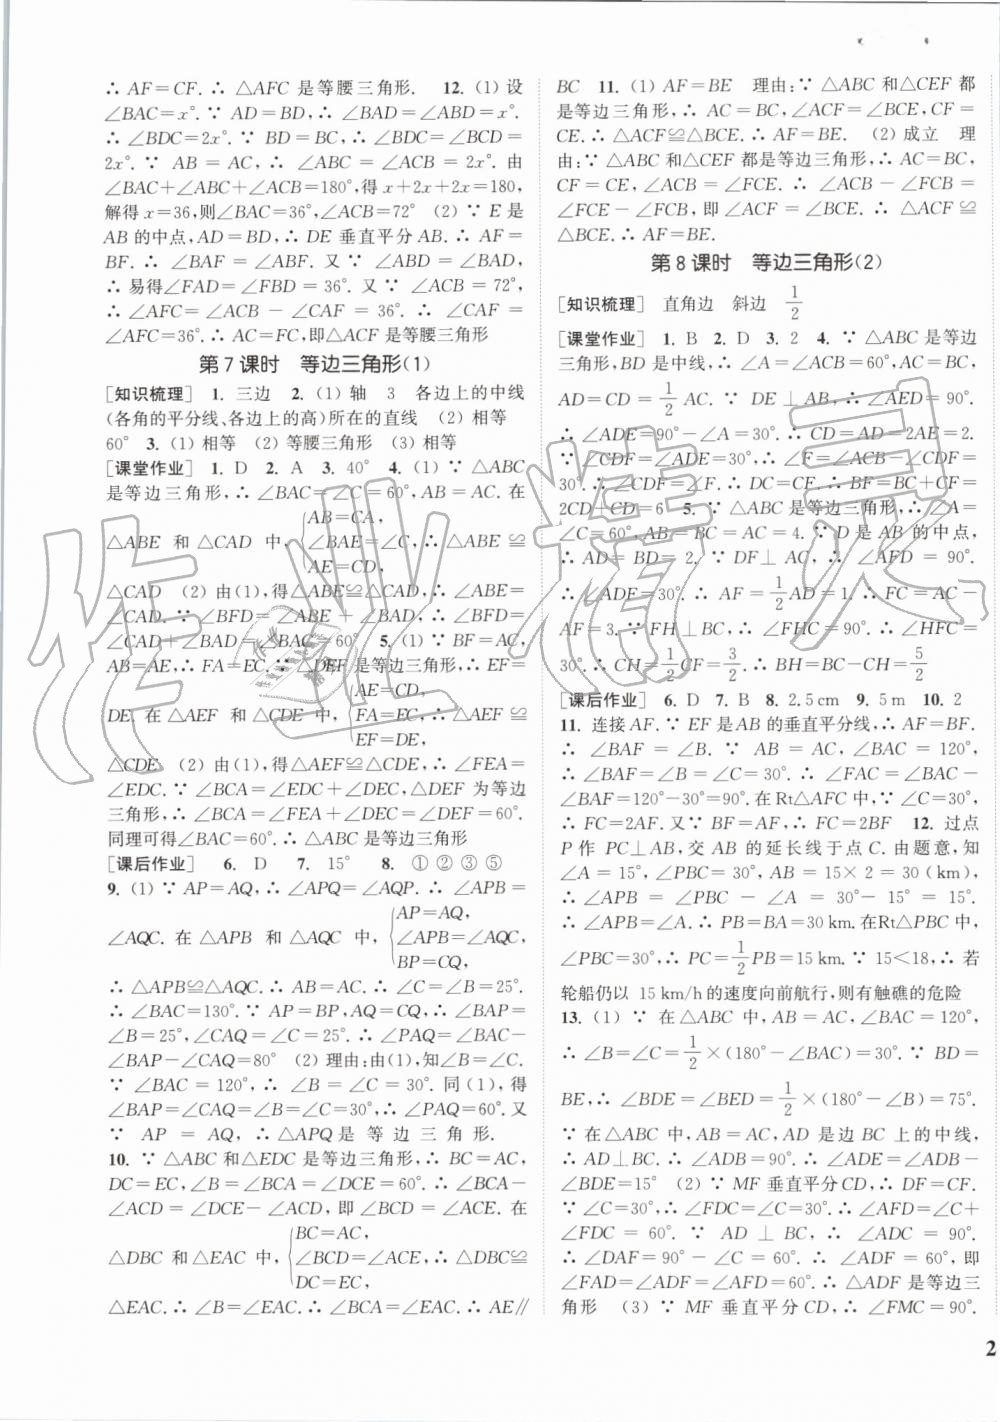 ∴ AF=CF. ∴ △AFC 是等腰三角形. 12. (1) 设
∠BAC=x°. ∵ AD=BD, ∴ ∠BAD=∠ABD=x°.
∴ ∠BDC=2x°. ∵ BD=BC, ∴ ∠BDC=∠BCD=
2x°. ∵ AB=AC, ∴ ∠ABC=∠ACB=2x°. 由
∠BAC+∠ABC+∠ACB=180°,得 x+2x+2x=180,
解得 x=36,则∠BAC=36°,∠ACB=72° (2) ∵ E 是
AB 的中点,AD=BD,∴ DE 垂直平分 AB. ∴ AF=
BF. ∴ ∠BAF=∠ABF. 又∵ ∠ABD=∠BAD,
∴ 易得∠FAD=∠FBD=36°. 又∵ ∠ABC=72°,
∴ ∠AFC=∠ABC-∠BAF=36°. ∴ ∠CAF=
∠AFC=36°. ∴ AC=FC,即△ACF 是等腰三角形
第 7 课时 等边三角形(1)
[知识梳理] 1. 三边 2. (1) 轴 3 各边上的中线
(各角的平分线、各边上的高)所在的直线 (2) 相等
60° 3. (1) 相等 (2) 等腰三角形 (3) 相等
[课堂作业] 1. D 2. A 3. 40° 4. (1) ∵ △ABC
是等边三角形,∴ ∠BAC=∠C=60°,AB=AC. 在
△ABE 和△CAD 中,{AB=CA, ∠BAE=∠C, AE=CD, ∴ △ABE≌
△CAD (2) 由(1),得△ABE≌△CAD. ∴ ∠ABE=
∠CAD. ∴ ∠BFD=∠ABE+∠BAD. ∴ ∠BFD=
∠CAD+∠BAD=∠BAC=60° 5. (1) ∵ BF=AC,
AB=AE,∴ FA=EC. ∵ △DEF 是等边三角形,∴ EF=
DE. 在△AEF 和△CDE 中,{AE=CD, FA=EC, EF=DE, ∴ △AEF≌
△CDE (2) 由(1),得△AEF≌△CDE,∴ ∠FEA=
∠EDC. ∵ ∠BCA=∠EDC+∠DEC,△DEF 为等边
三角形,∴ ∠BCA=∠FEA+∠DEC=∠DEF=60°.
同理可得∠BAC=60°. ∴ △ABC 是等边三角形
[课后作业] 6. D 7. 15° 8. ①②③⑤
9. (1) ∵ AP=AQ,∴ ∠APQ=∠AQP. ∴ ∠APB=
∠AQC. 在△APB 和△AQC 中,{AP=AQ, ∠APB=∠AQC, BP=CQ,
∴ △APB≌△AQC. ∴ AB=AC. ∴ ∠C=∠B=25°.
∴ ∠BAC=130°. ∵ AP=BP,AQ=CQ,∴ ∠BAP=
∠B=25°,∠CAQ=∠C=25°. ∴ ∠PAQ=∠BAC-
∠BAP-∠CAQ=80° (2) 理由:由(1),知∠B=∠C.
∵ ∠BAC=120°,∴ ∠B=∠C=30°. 同(1),得
∠BAP=∠CAQ=∠B=∠C=30°,∴ ∠PAQ=60°. 又
∵ AP=AQ,∴ △APQ 是等边三角形.
10. ∵ △ABC 和△EDC 是等边三角形,∴ BC=AC,
DC=EC,∠B=∠BCA=∠DCE=60°. ∴ ∠BCA-
∠ACD=∠DCE-∠ACD,即∠BCD=∠ACE. 在
△DBC 和△EAC 中,{BC=AC, ∠BCD=∠ACE, DC=EC, ∴ △DBC≌
△EAC. ∴ ∠B=∠EAC. ∴ ∠BCA=∠EAC. ∴ AE∥
BC 11. (1) AF=BE 理由:∵ △ABC 和△CEF 都
是等边三角形,∴ AC=BC,∠ACF=∠BCE,CF=
CE. ∴ △ACF≌△BCE. ∴ AF=BE. (2) 成立 理
由:∵ △ABC 和△CEF 都是等边三角形,∴ AC=BC,
CF=CE,∠ACB=∠FCE. ∴ ∠ACB-∠FCB=
∠FCE-∠FCB,即∠ACF=∠BCE. ∴ △ACF≌
△BCE. ∴ AF=BE.
第 8 课时 等边三角形(2)
[知识梳理] 直角边 斜边 1/2
[课堂作业] 1. B 2. D 3. 2 4. ∵ △ABC 是等边
三角形,BD 是中线,∴ ∠A=∠ACB=60°,∠CDF=30°,
AD=CD=1/2 AC. ∵ DE⊥AB,∴ ∠AED=90°.
∴ ∠ADE=90°-∠A=30°. ∴ CD=AD=2AE=2.
∵ ∠CDF=∠ADE=30°,∴ ∠F=∠ACB-∠CDF=
30°. ∴ ∠CDF=∠F. ∴ DC=CF. ∴ BF=BC+CF=
2CD+CD=6 5. ∵ △ABC 是等边三角形,∴ ∠A=
∠C=60°,AB=AC=BC=4. ∵ D 是 AB 的中点,
∴ AD=BD=2. ∵ DF⊥AC,∴ ∠AFD=90°.
∴ ∠ADF=30°. ∴ AF=1/2 AD=1. ∴ FC=AC-
AF=3. ∵ FH⊥BC,∴ ∠FHC=90°. ∴ ∠HFC=
30°. ∴ CH=1/2 CF=3/2. ∴ BH=BC-CH=5/2
[课后作业] 6. D 7. B 8. 2.5 cm 9. 5 m 10. 2
11. 连接 AF. ∵ EF 是 AB 的垂直平分线,∴ AF=BF.
∴ ∠BAF=∠B. ∵ AB=AC,∠BAC=120°,
∴ ∠BAF=∠B=∠C=30°. ∴ ∠FAC=∠BAC-
∠BAF=120°-30°=90°. 在 Rt△AFC 中,∵ ∠C=30°,
∴ FC=2AF. 又∵ BF=AF,∴ FC=2BF 12. 过点
P 作 PC⊥AB,交 AB 的延长线于点 C. 由题意,知
∠A=15°,∠PBC=30°,AB=15×2=30 (km),
∴ ∠APB=∠PBC-∠A=30°-15°=15°.
∴ ∠APB=∠A. ∴ PB=BA=30 km. 在 Rt△PBC 中,
∠PBC=30°,∴ PC=1/2 PB=15 km. ∵ 15<18,∴ 若
轮船仍以 15 km/h 的速度向前航行,则有触礁的危险
13. (1) ∵ 在△ABC 中,AB=AC,∠BAC=120°,
∴ ∠B=∠C=1/2×(180°-∠BAC)=30°. ∵ BD=
BE,∴ ∠BDE=∠BED=1/2×(180°-∠B)=75°.
∵ 在△ABC 中,AB=AC,AD 是边 BC 上的中线,
∴ AD⊥BC. ∴ ∠ADB=90°. ∴ ∠ADE=∠ADB-
∠BDE=15° (2) ∵ MF 垂直平分 CD,∴ DF=CF.
∵ ∠C=30°,∴ ∠FDC=∠C=30°. ∴ ∠AFD=∠C+
∠FDC=60°. ∵ AD⊥BC,∴ ∠ADC=90°.
∴ ∠DAF=90°-∠C=60°. ∴ ∠ADF=60°,即
∠FAD=∠ADF=∠AFD=60°. ∴ △ADF 是等边三
角形 (3) ∵ MF 垂直平分 CD,∴ ∠FMC=90°.
2
作业精灵